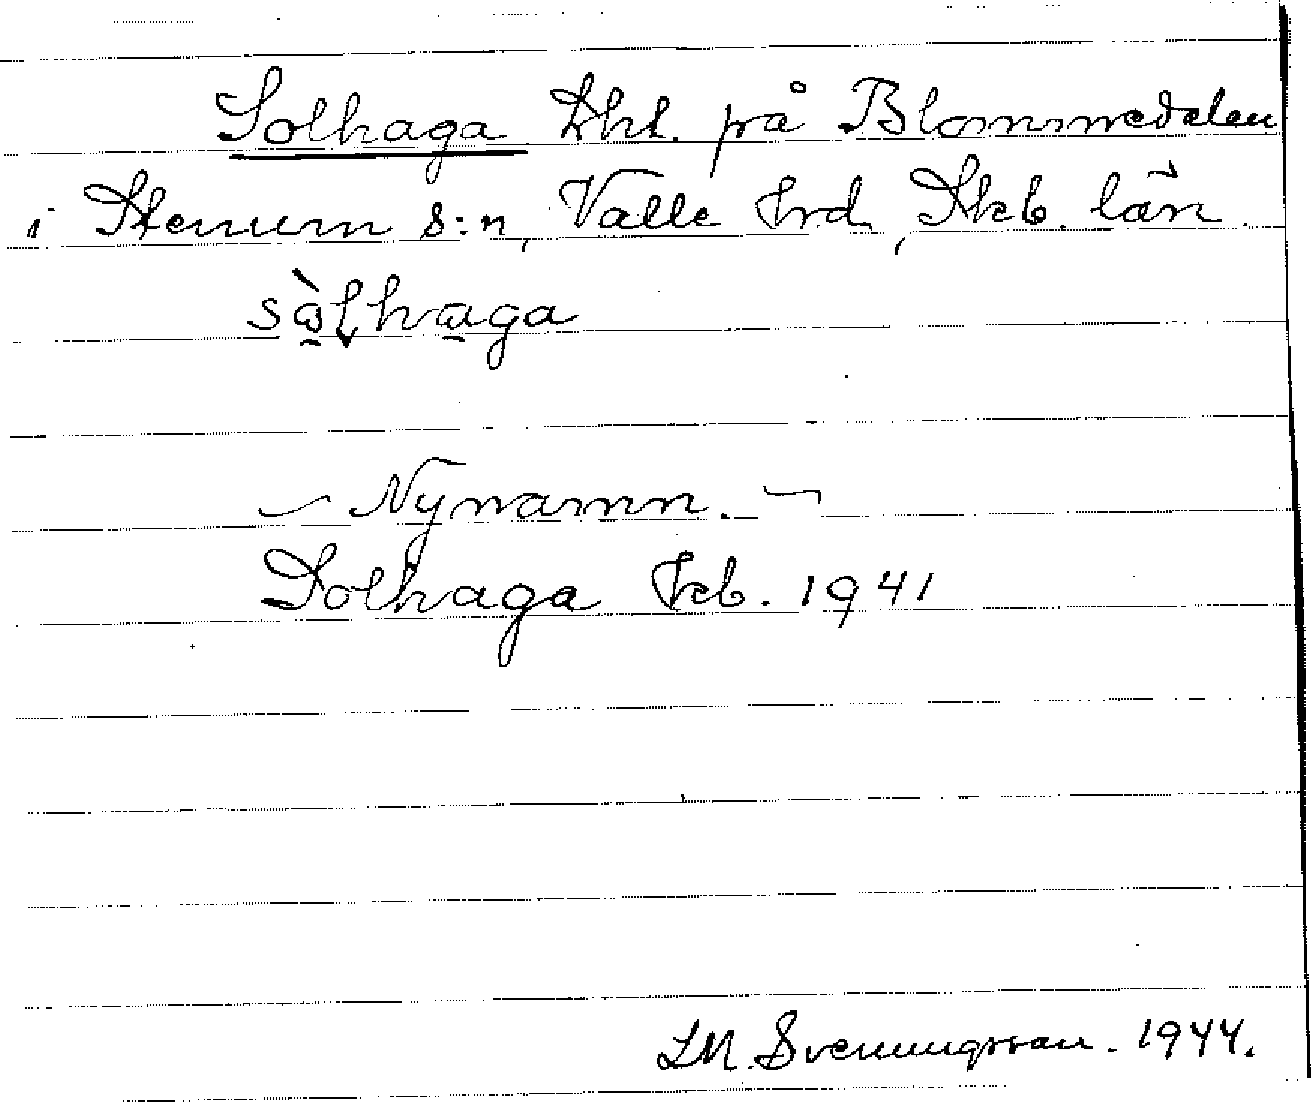 Solhaga lht. på Blommedalen
i Stenum s:n, Valle hrd, Skb. län.
sòlhaga
– Nynamn. –
Solhaga Jrb. 1941
LM. Svenungsson. 1944.